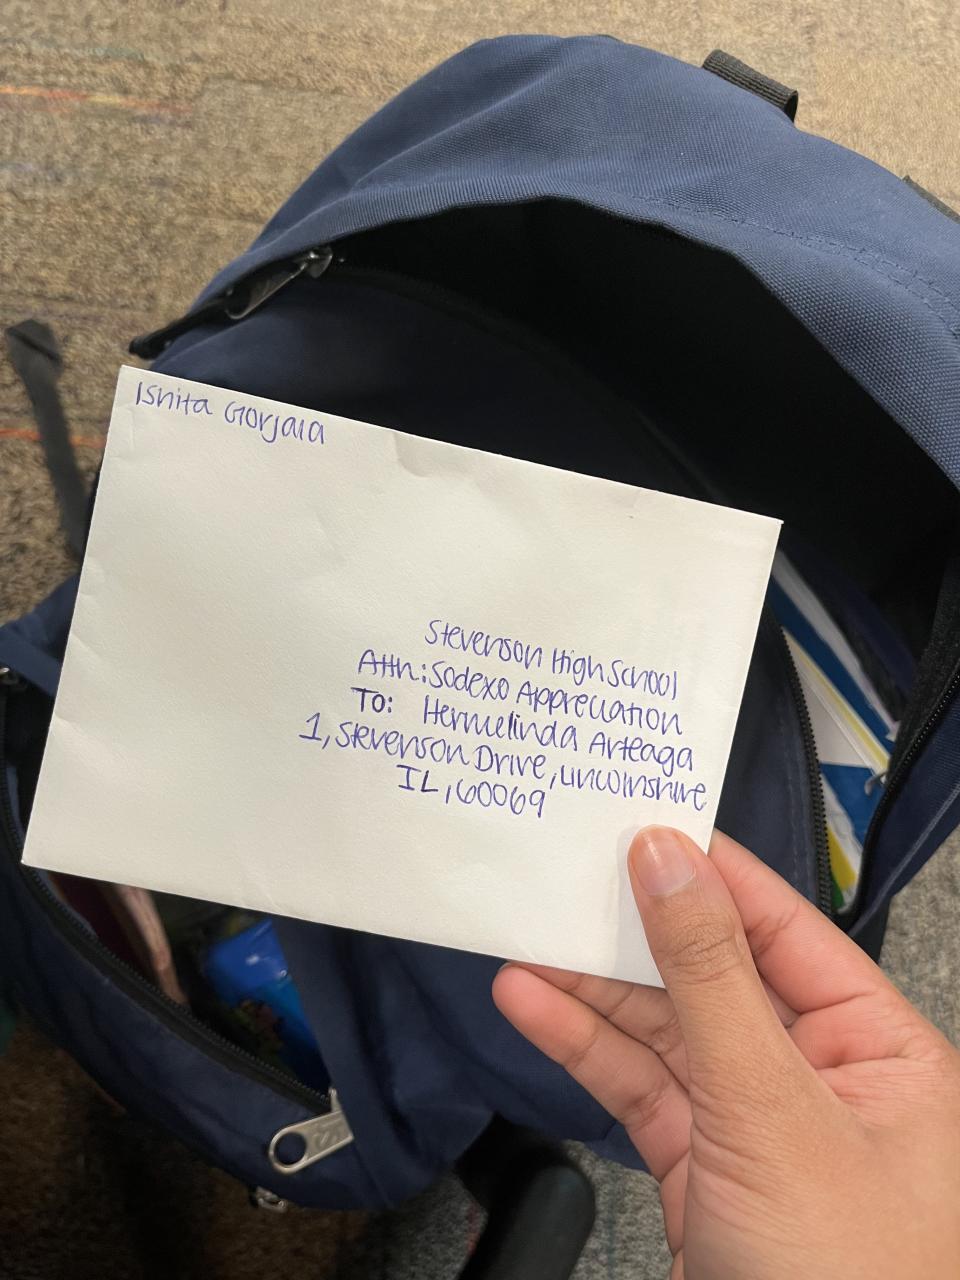 Ishita Gorjala
Stevenson High School
Attn: Sodexo Appreciation
To: Hermelinda Arteaga
1, Stevenson Drive, Lincolnshire
IL, 60069